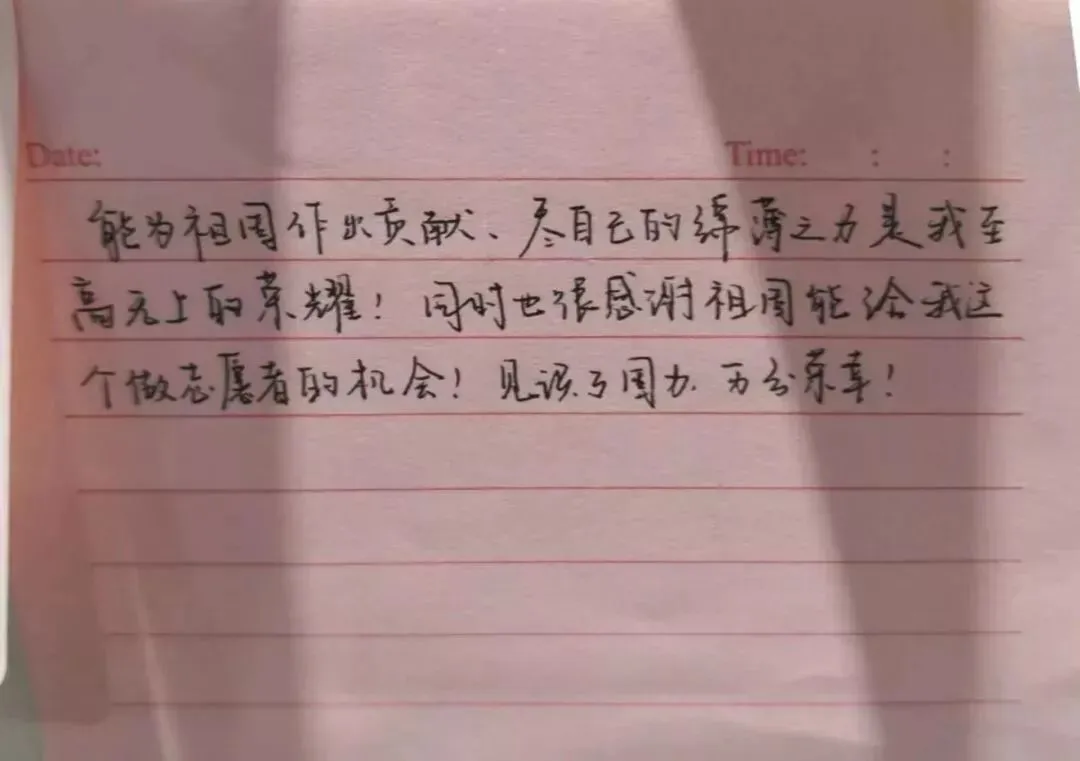 Date: Time: : :
能为祖国作出贡献、尽自己的绵薄之力是我至
高无上的荣耀！同时也很感谢祖国能给我这
个做志愿者的机会！见识了国力、万分荣幸！